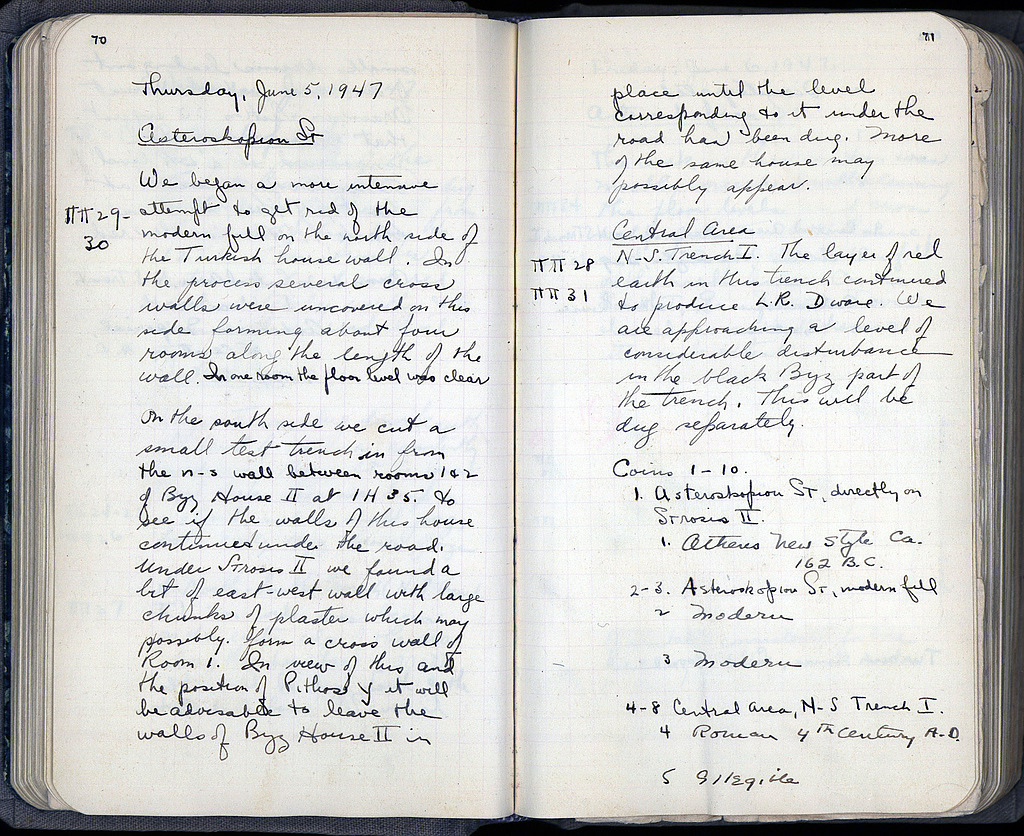 70
Thursday, June 5, 1947
Asteroskopion St
We began a more intensive
ΠΠ 29- attempt to get rid of the
30 modern fill on the north side of
the Turkish house wall. In
the process several cross
walls were uncovered on this
side forming about four
rooms along the length of the
wall. In one room the floor level was clear
On the south side we cut a
small test trench in from
the N-S wall between rooms 1&2
of Byz House II at 1H 35. to
see if the walls of this house
continued under the road.
Under Strosis II we found a
bit of east-west wall with large
chunks of plaster which may
possibly. form a cross wall of
Room 1. In view of this and
the position of Pithos y it will
be advisable to leave the
walls of Byz House II in
71
place until the level
corresponding to it under the
road has been dug. More
of the same house may
possibly appear.
Central Area
ΠΠ 28 N-S. Trench I. The layer of red
ΠΠ 31 earth in this trench continued
to produce L.R. D ware. We
are approaching a level of
considerable disturbance
in the black Byz part of
the trench. This will be
dug separately.
Coins 1-10.
1. Asteroskopion St, directly on
Strosis II.
1. Athens New Style Ca.
162 B.C.
2-3. Asteroskopion St, modern fill
2 Modern
3 Modern
4-8 Central area, N-S Trench I.
4 Roman 4th Century A.D.
5 Illegible